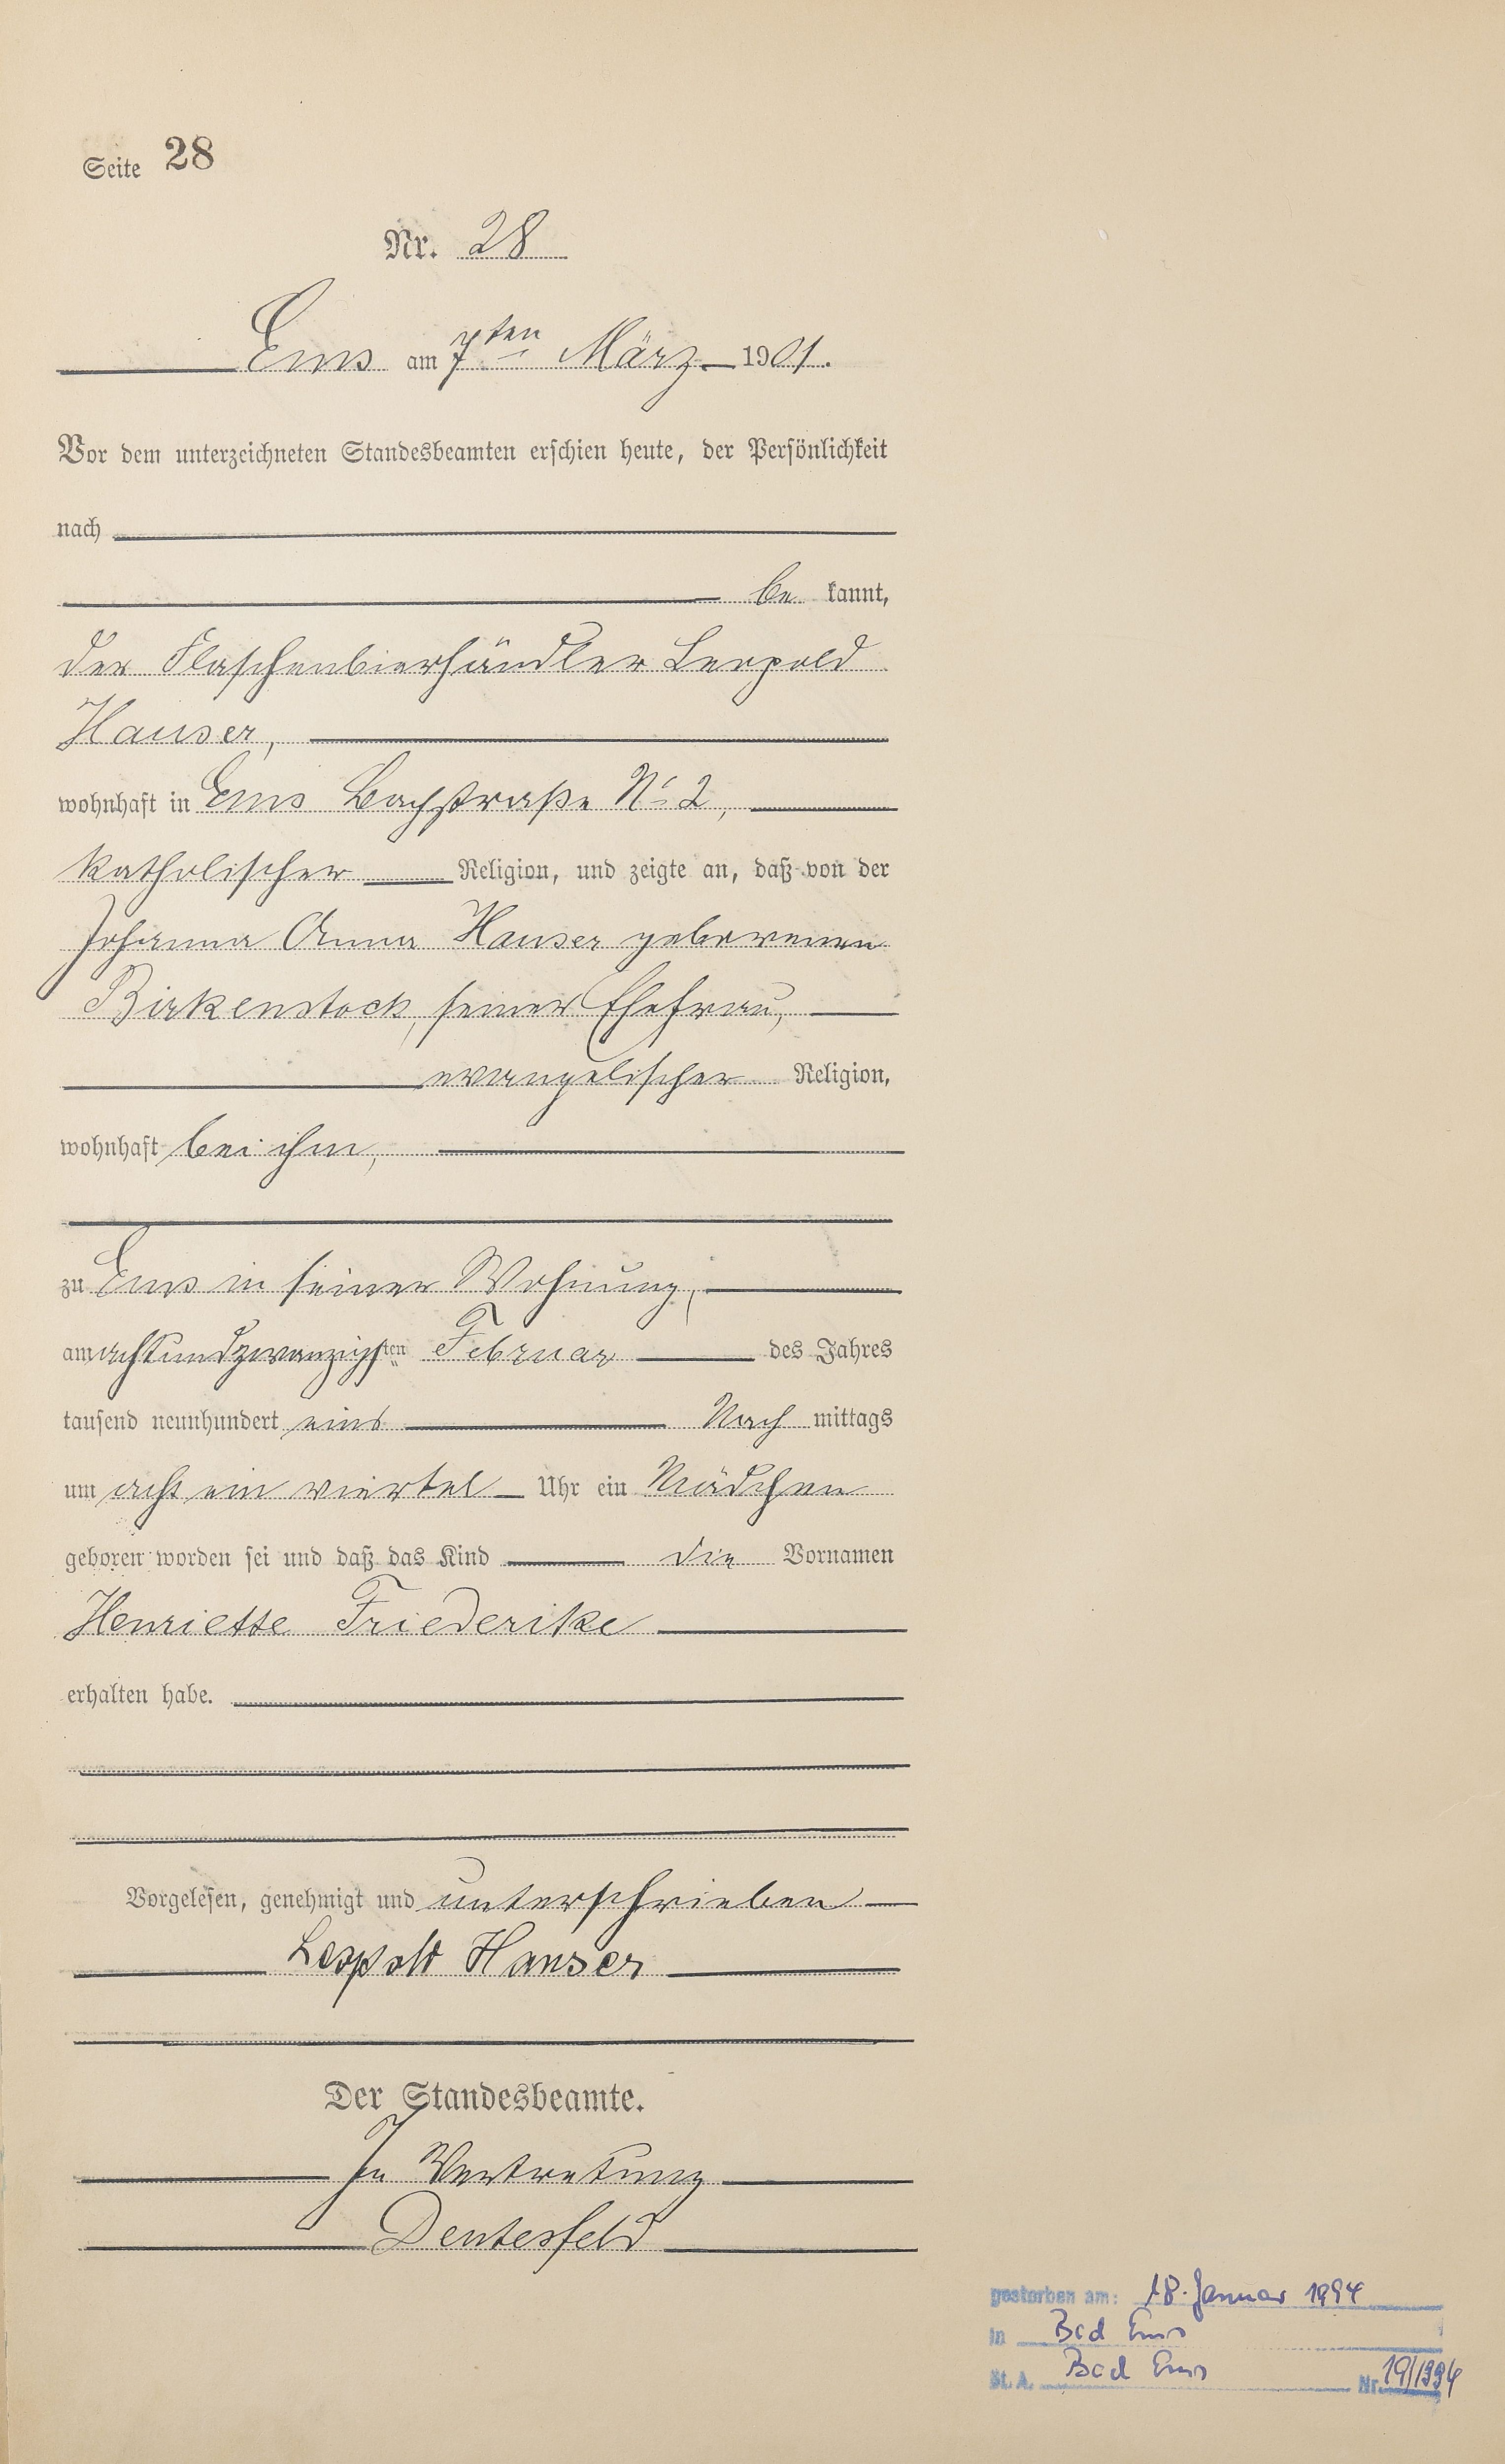 Seite 28
Nr. 28
Ems am 7ten März 1901.
Vor dem unterzeichneten Standesbeamten erschien heute, der Persönlichkeit
nach
be kannt,
der Flaschenbierhändler Leopold
Hauser,
wohnhaft in Ems Bachstraße No 2,
katholischer Religion, und zeigte an, daß von der
Johanna Anna Hauser geborenen
Birkenstock, seiner Ehefrau,
evangelischer Religion,
wohnhaft bei ihm,
zu Ems in seiner Wohnung,
am achtundzwanzigsten Februar des Jahres
tausend neunhundert eins Nach mittags
um acht ein viertel Uhr ein Mädchen
geboren worden sei und daß das Kind die Vornamen
Henriette Friederike
erhalten habe.
Vorgelesen, genehmigt und unterschrieben
Leopold Hauser
Der Standesbeamte.
In Vertretung
gestorben am: 18. Januar 1994
in Bad Ems
St. A. Bad Ems Nr. 19/1994